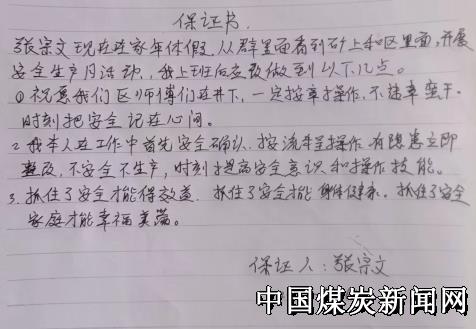 保证书.
张宗文现在在家年休假,从群里面看到矿上和区里面,开展
安全生产月活动,我上班向应改做到以下几点。
①祝愿我们区师傅们在井下,一定按章操作,不违章蛮干.
时刻把安全记在心间。
2.我本人在工作中首先安全确认.按流程操作.有隐患立即
整改,不安全不生产,时刻提高安全意识和操作技能。
3.抓住了安全才能得效益.抓住了安全才能身体健康.抓住了安全
家庭才能幸福美满。
保证人:张宗文
中国煤炭新闻网